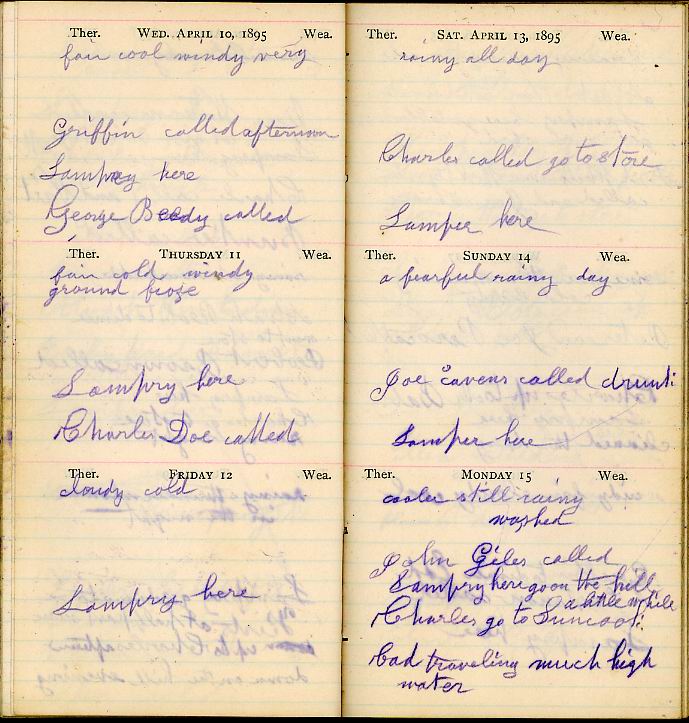 Ther. WED. APRIL 10, 1895 Wea.
fair cool windy very
Griffin called afternoon
Lamprey here
George Beedy called
Ther. THURSDAY 11 Wea.
fair cold windy
ground froze
Lampry here
Charles Doe called
Ther. FRIDAY 12 Wea.
cloudy cold
Lampry here
Ther. SAT. APRIL 13, 1895 Wea.
rainy all day
Charles called go to store
Lamper here
Ther. SUNDAY 14 Wea.
a fearful rainy day
Joe cavens called drunk
Lamper here
Ther. MONDAY 15 Wea.
cooler still rainy
washed
John Giles called
Lampry here go on the hill
a little while
Charles go to Suncook
bad traveling much high
water